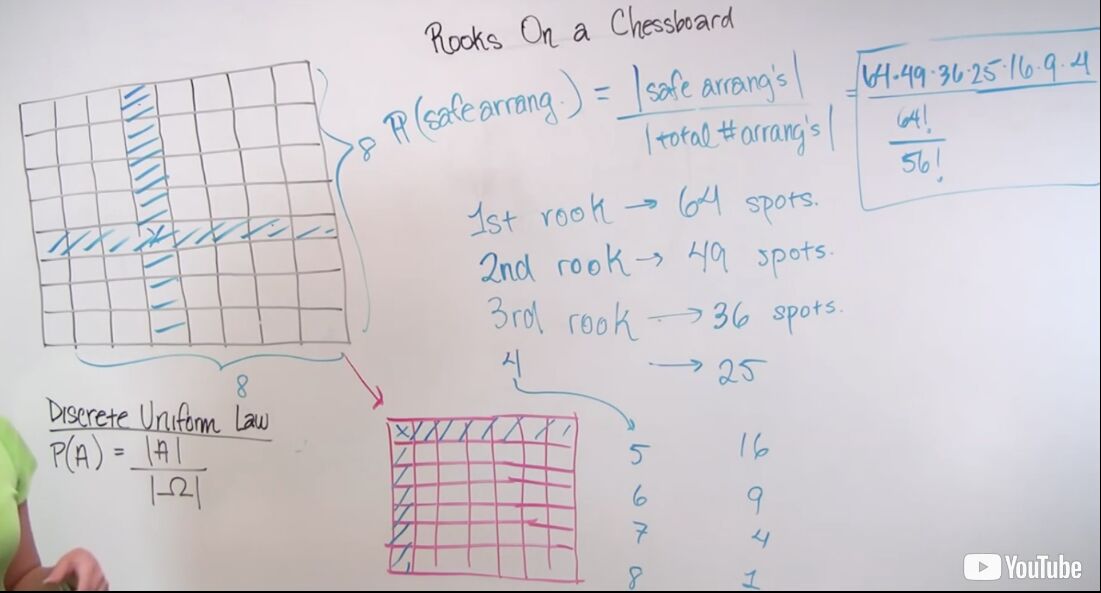 Rooks On a Chessboard
P(safe arrang.) = |safe arrang's| / |total # arrang's| = 64·49·36·25·16·9·4 / (64! / 56!)
8
1st rook → 64 spots.
2nd rook → 49 spots.
3rd rook → 36 spots.
4 → 25
5 16
6 9
7 4
8 1
8
Discrete Uniform Law
P(A) = |A| / |Ω|
x
x
YouTube